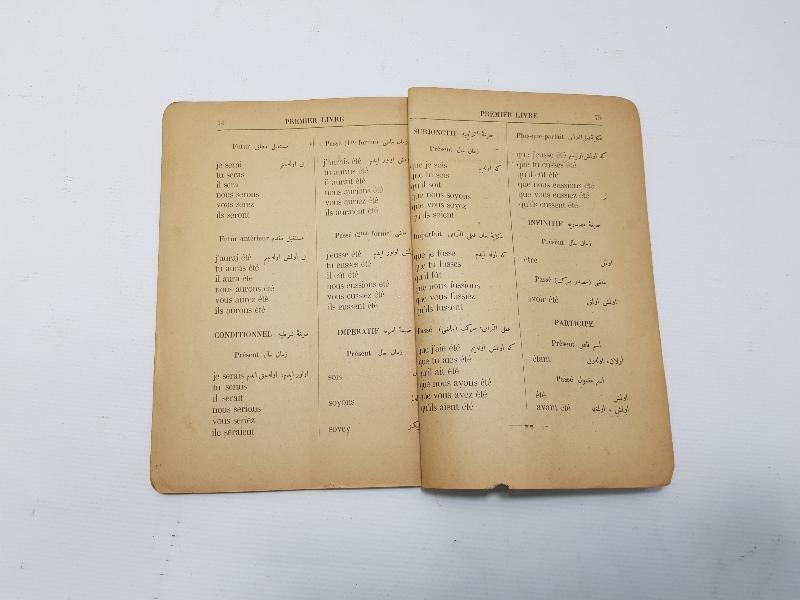 74
PREMIER LIVRE
Futur
مستقبل
je serai
tu seras
il sera
nous serons
vous serez
ils seront
Futur antérieur
مستقبل مقدم
j'aurai été
tu auras été
il aura été
nous aurons été
vous aurez été
ils aurons été
CONDITIONNEL
صيغهٔ شرطيه
Présent
زمان حال
je serais
tu serais
il serait
nous serions
vous seriez
ils seraient
Passé (1re forme)
زمان ماضى
j'aurais été
tu aurais été
il aurait été
nous aurions été
vous auriez été
ils auraient été
Passé (2me forme)
ماضى
j'eusse été
tu eusses été
il eût été
nous eussions été
vous eussiez été
ils eussent été
IMPERATIF
صيغهٔ امريه
Présent
زمان حال
sois
soyons
soyey
PREMIER LIVRE
75
SUBJONCTIF
Présent
زمان حال
que je sois
que tu sois
qu'il soit
que nous soyons
que vous soyez
qu'ils soient
Imparfait
que je fusse
que tu fusses
qu'il fût
que nous fussions
que vous fussiez
qu'ils fussent
Passé
que j'aie été
que tu aies été
qu'il ait été
que nous avons été
que vous avez été
qu'ils aient été
Plus-que-parfait
que j'eusse été
que tu eusses été
qu'il eût été
que nous eussions été
que vous eussiez été
qu'ils eussent été
INFINITIF
صيغهٔ مصدريه
Présent
زمان حال
être
اولمق
Passé
ماضى (مصدر مركب)
avoir été
اولمش اولمق
PARTICIPE
Présent
اسم فاعل
étant
اولان، اولهرق
Passé
اسم مفعول
été
اولمش
avant été